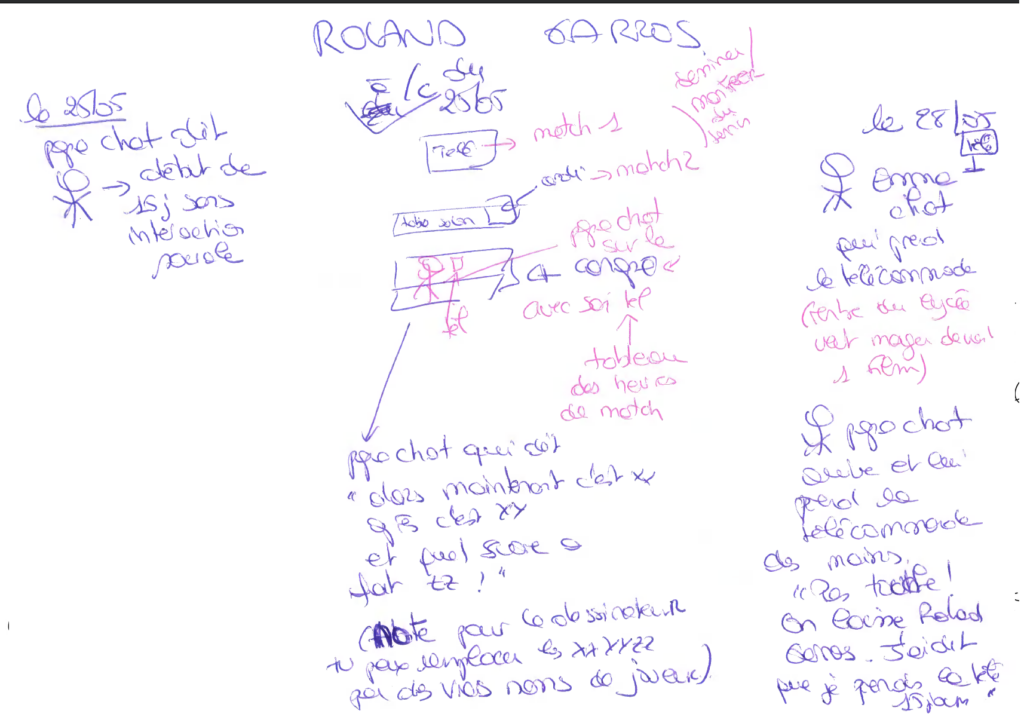 ROLAND GARROS
le 25/05
papa chat dit
→ début de
15j sans
interaction
sociale
du
25/05
Télé → match 1
ordi → match 2
table salon
papa chat
sur le
canapé
avec soi tel
tel
tableau
des heures
de match
papa chat qui dit
"alors maintenant c'est xx
après c'est YY
et quel score a
fait ZZ !"
(Note pour le dessinateur
tu peux remplacer les XX YY ZZ
par des vrais noms de joueurs)
le 28/05
télé
chat
qui prend
la télécommande
(rentre du lycée
veut manger devant
1 film)
papa chat
arrive et lui
prend la
télécommande
des mains.
"Pas touche !
On laisse Roland
Garros. J'ai dit
que je prends la télé
15 jours"